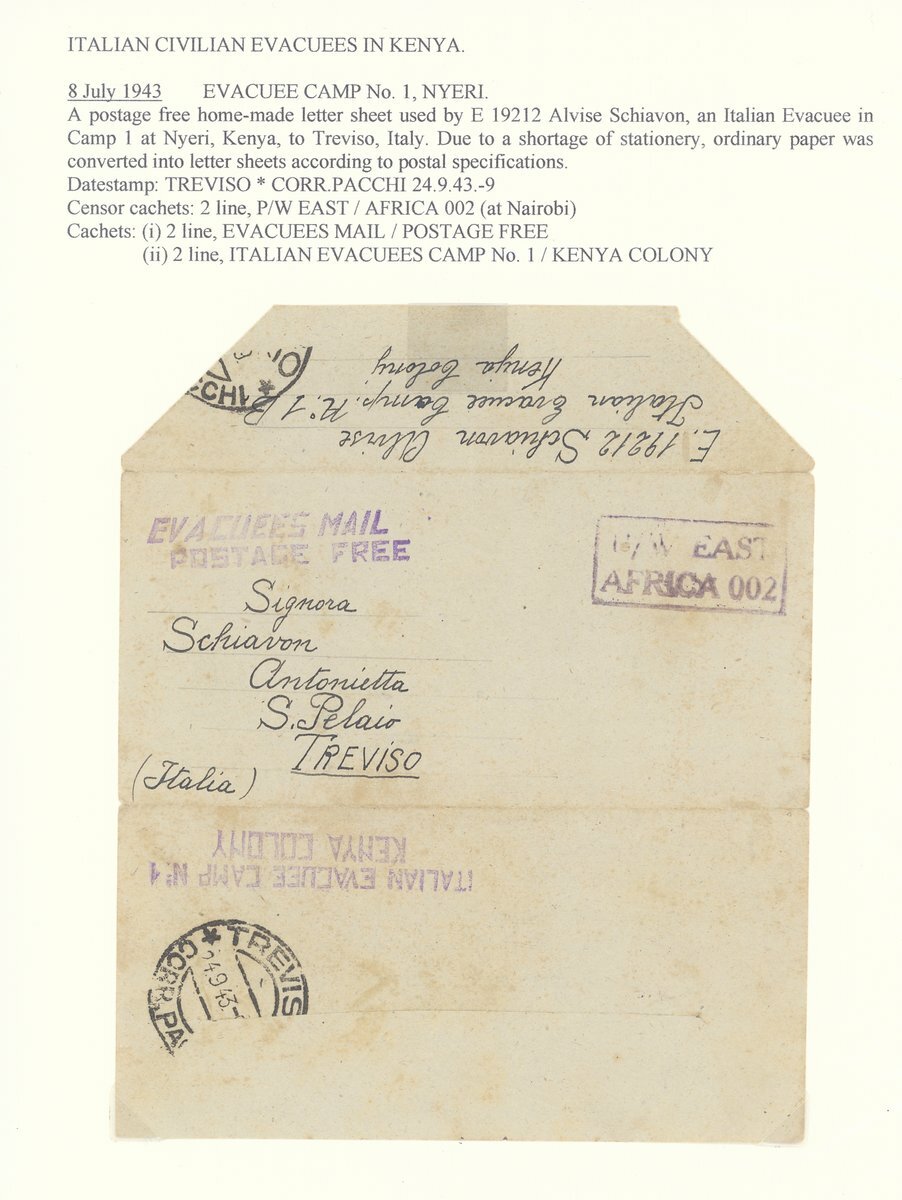 ITALIAN CIVILIAN EVACUEES IN KENYA.
8 July 1943 EVACUEE CAMP No. 1, NYERI.
A postage free home-made letter sheet used by E 19212 Alvise Schiavon, an Italian Evacuee in
Camp 1 at Nyeri, Kenya, to Treviso, Italy. Due to a shortage of stationery, ordinary paper was
converted into letter sheets according to postal specifications.
Datestamp: TREVISO * CORR.PACCHI 24.9.43.-9
Censor cachets: 2 line, P/W EAST / AFRICA 002 (at Nairobi)
Cachets: (i) 2 line, EVACUEES MAIL / POSTAGE FREE
(ii) 2 line, ITALIAN EVACUEES CAMP No. 1 / KENYA COLONY
E. 19212 Schiavon Alvise
Italian Evacuee Camp. N°. 1
Kenya Colony
CCHI *
EVACUEES MAIL
POSTAGE FREE
P/W EAST
AFRICA 002
Signora
Schiavon
Antonietta
S. Pelaio
TREVISO
(Italia)
ITALIAN EVACUEE CAMP N°.1
KENYA COLONY
CORR.PA * TREVIS
24.9.43.-